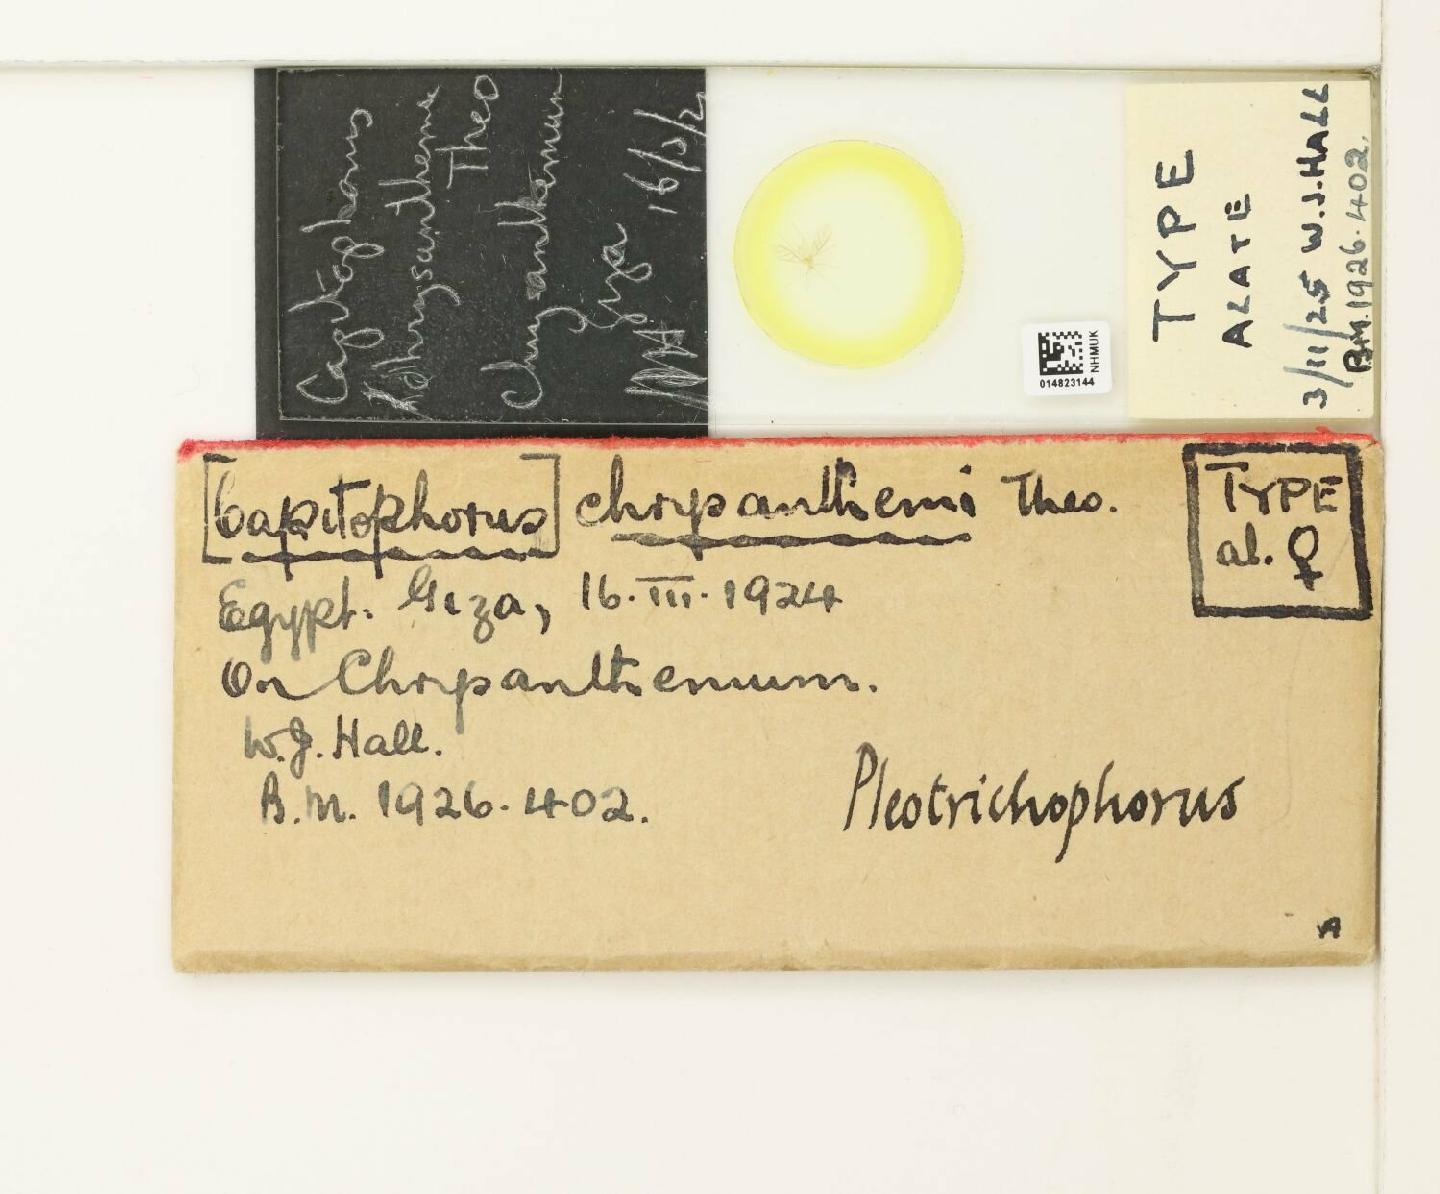 Capitophorus
Chrysanthemi
Theo
Chrysanthemum
Giza 16/3/2
TYPE
ALATE
3/11/25 W.J.HALL
B.M.1926.402.
NHMUK
014823144
[Capitophorus] chrysanthemi Theo.
TYPE
al. ♀
Egypt. Giza, 16.III.1924
On Chrysanthemum.
W.J. Hall.
B.M. 1926.402.
Pleotrichophorus
A